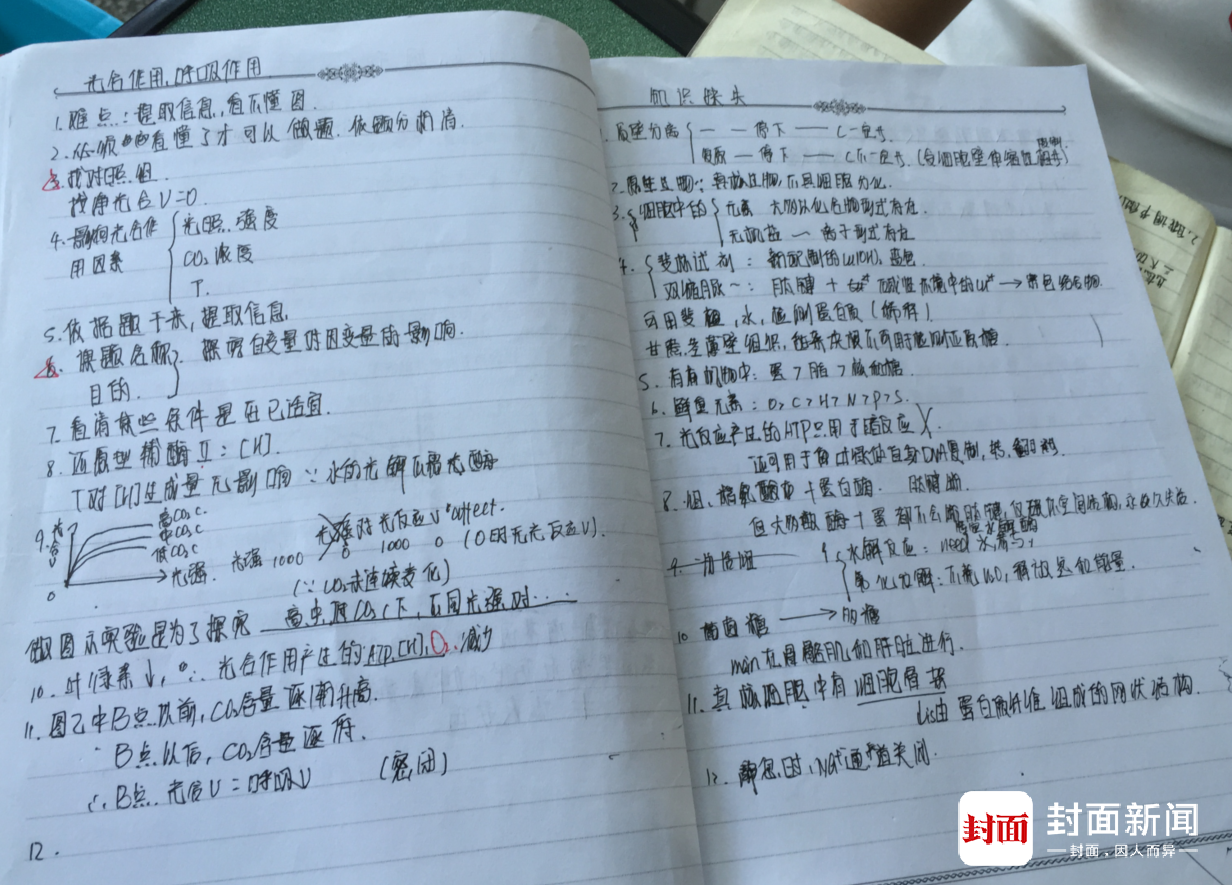 光合作用,呼吸作用
1.难点:提取信息,看不懂图.
2.依据 看懂了才可以做题.依题分析清.
3.找对照组.
找净光合V=0.
4.影响光合作
用因素
光照强度
CO₂浓度
T.
5.依据题干来,提取信息
6.课题名称
目的.
探究自变量对因变量的影响.
7.看清某些条件是否已适宜.
8.还原型辅酶Ⅱ:[H]
T对[H]生成量无影响 ∵水的光解不需光酶
9.光合
高CO₂c.
中CO₂c.
低CO₂c
光强.
0
光强1000
对光反应V
1000 0 (0时无光反应V).
(∵CO₂未连续变化)
做图示实验是为了探究 高中低CO₂c下,不同光强对……
10.叶绿素↓,∴光合作用产生的ATP,[H],O₂减少
11.图乙中B点以前,CO₂含量逐渐升高.
B点以后,CO₂含量逐降.
∴B点.光合V=呼吸V (密闭)
12.
知识缺失
1.质壁分离
一一停下——C一定亏.
复原一停下——C不一定亏.(受细胞壁伸缩性限制)
2.原生生物:单核生物,不具细胞分化.
3.细胞中的
元素 大多以化合物形式存在.
无机盐一离子形式存在
4.
斐林试剂:新配制的Cu(OH)₂ 蓝色
双缩脲~:肽键+ 碱性环境中的Cu²⁺→紫色络合物
可用斐林,水,检测蛋白质(稀释)
甘蔗,生薄壁组织,甜菜块根不可用于检测还原糖.
5.有机物中:蛋>脂>核和糖.
6.鲜重元素:O>C>H>N>P>S.
7.光反应产生的ATP只用于暗反应 X.
还可用于叶绿体自身DNA复制,转,翻
8.组.
蛋白酶. 肽键断
9.
水解反应:need 水参与,
氧化分解:不需H₂O,释放 能量.
10 葡萄糖——→肌糖
man在骨骼肌和肝脏进行.
11.真核细胞中有细胞骨架
由蛋白质纤维组成的网状结构.
12.静息时,Na⁺通道关闭.
封面
封面新闻
封面,因人而异